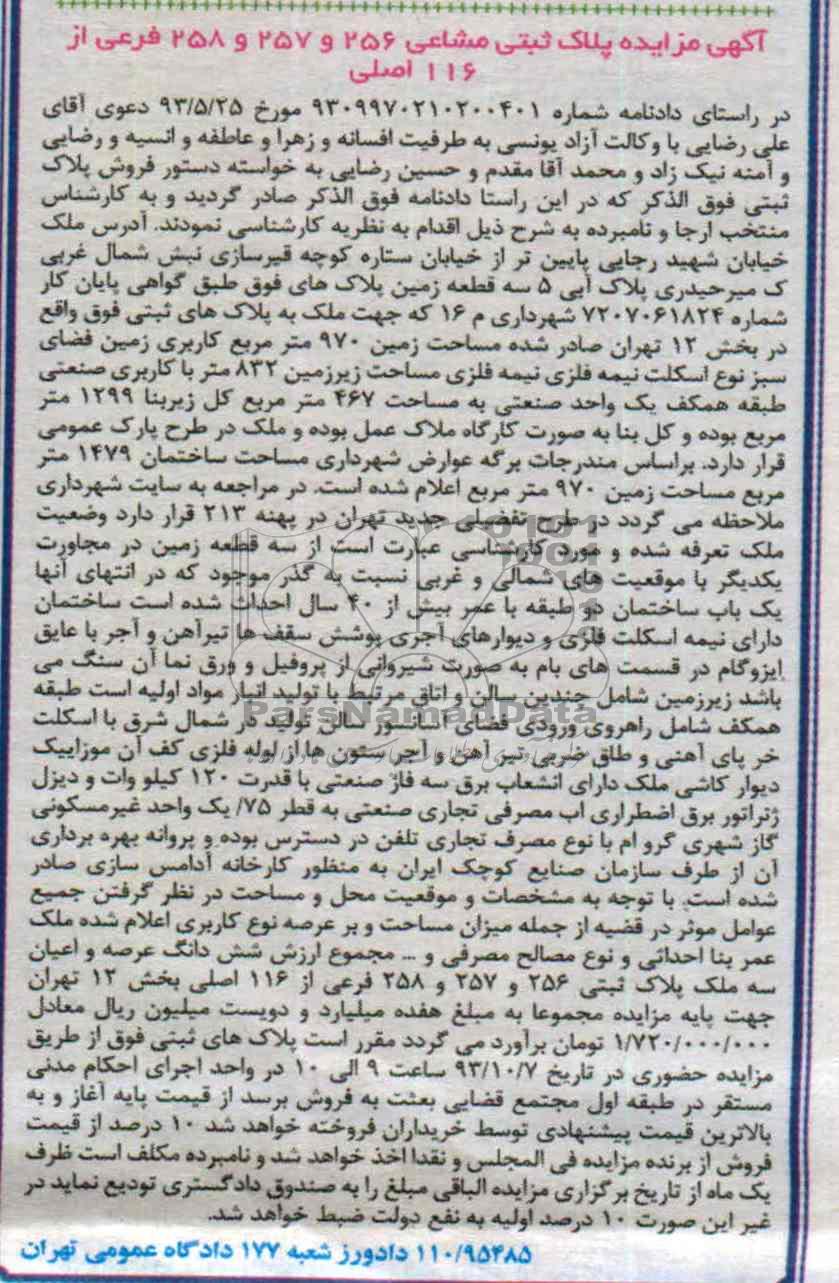 آگهی مزایده پلاک ثبتی مشاعی ۲۵۶ و ۲۵۷ و ۲۵۸ فرعی از
۱۱۶ اصلی
در راستای دادنامه شماره ۹۳۰۹۹۷۰۲۱۰۲۰۰۴۰۱ مورخ ۹۳/۵/۲۵ دعوی آقای
علی رضایی با وکالت آزاد یونسی به طرفیت افسانه و زهرا و عاطفه و انسیه و رضایی
و آمنه نیک زاد و محمد آقا مقدم و حسین رضایی به خواسته دستور فروش پلاک
ثبتی فوق الذکر که در این راستا دادنامه فوق الذکر صادر گردید و به کارشناس
منتخب ارجا و نامبرده به شرح ذیل اقدام به نظریه کارشناسی نمودند. آدرس ملک
خیابان شهید رجایی پایین تر از خیابان ستاره کوچه قیرسازی نبش شمال غربی
ک میرحیدری پلاک آبی ۵ سه قطعه زمین پلاک های فوق طبق گواهی پایان کار
شماره ۷۲۰۷۰۶۱۸۲۴ شهرداری م ۱۶ که جهت ملک به پلاک های ثبتی فوق واقع
در بخش ۱۲ تهران صادر شده مساحت زمین ۹۷۰ متر مربع کاربری زمین فضای
سبز نوع اسکلت نیمه فلزی نیمه فلزی مساحت زیرزمین ۸۳۲ متر با کاربری صنعتی
طبقه همکف یک واحد صنعتی به مساحت ۴۶۷ متر مربع کل زیربنا ۱۲۹۹ متر
مربع بوده و کل بنا به صورت کارگاه ملاک عمل بوده و ملک در طرح پارک عمومی
قرار دارد. براساس مندرجات برگه عوارض شهرداری مساحت ساختمان ۱۴۷۹ متر
مربع مساحت زمین ۹۷۰ متر مربع اعلام شده است. در مراجعه به سایت شهرداری
ملاحظه می گردد در طرح تفضیلی جدید تهران در پهنه ۲۱۳ قرار دارد وضعیت
ملک تعرفه شده و مورد کارشناسی عبارت است از سه قطعه زمین در مجاورت
یکدیگر با موقعیت های شمالی و غربی نسبت به گذر موجود که در انتهای آنها
یک باب ساختمان دو طبقه با عمر بیش از ۴۰ سال احداث شده است ساختمان
دارای نیمه اسکلت فلزی و دیوارهای آجری پوشش سقف ها تیرآهن و آجر با عایق
ایزوگام در قسمت های بام به صورت شیروانی از پروفیل و ورق نما آن سنگ می
باشد زیرزمین شامل چندین سالن و اتاق مرتبط با تولید انبار مواد اولیه است طبقه
همکف شامل راهروی ورودی فضای آسانسور سالن تولید در شمال شرق با اسکلت
خر پای آهنی و طاق ضربی تیر آهن و آجر ستون ها از لوله فلزی کف آن موزاییک
دیوار کاشی ملک دارای انشعاب برق سه فاز صنعتی با قدرت ۱۲۰ کیلو وات و دیزل
ژنراتور برق اضطراری اب مصرفی تجاری صنعتی به قطر ۷۵/ یک واحد غیرمسکونی
گاز شهری گرو ام با نوع مصرف تجاری تلفن در دسترس بوده و پروانه بهره برداری
آن از طرف سازمان صنایع کوچک ایران به منظور کارخانه آدامس سازی صادر
شده است. با توجه به مشخصات و موقعیت محل و مساحت در نظر گرفتن جمیع
عوامل موثر در قضیه از جمله میزان مساحت و بر عرصه نوع کاربری اعلام شده ملک
عمر بنا احداثی و نوع مصالح مصرفی و ... مجموع ارزش شش دانگ عرصه و اعیان
سه ملک پلاک ثبتی ۲۵۶ و ۲۵۷ و ۲۵۸ فرعی از ۱۱۶ اصلی بخش ۱۲ تهران
جهت پایه مزایده مجموعا به مبلغ هفده میلیارد و دویست میلیون ریال معادل
۱/۷۲۰/۰۰۰/۰۰۰ تومان برآورد می گردد مقرر است پلاک های ثبتی فوق از طریق
مزایده حضوری در تاریخ ۹۳/۱۰/۷ ساعت ۹ الی ۱۰ در واحد اجرای احکام مدنی
مستقر در طبقه اول مجتمع قضایی بعثت به فروش برسد از قیمت پایه آغاز و به
بالاترین قیمت پیشنهادی توسط خریداران فروخته خواهد شد ۱۰ درصد از قیمت
فروش از برنده مزایده فی المجلس و نقدا اخذ خواهد شد و نامبرده مکلف است ظرف
یک ماه از تاریخ برگزاری مزایده الباقی مبلغ را به صندوق دادگستری تودیع نماید در
غیر این صورت ۱۰ درصد اولیه به نفع دولت ضبط خواهد شد.
۱۱۰/۹۵۴۸۵ دادورز شعبه ۱۷۷ دادگاه عمومی تهران
ParsNamadData